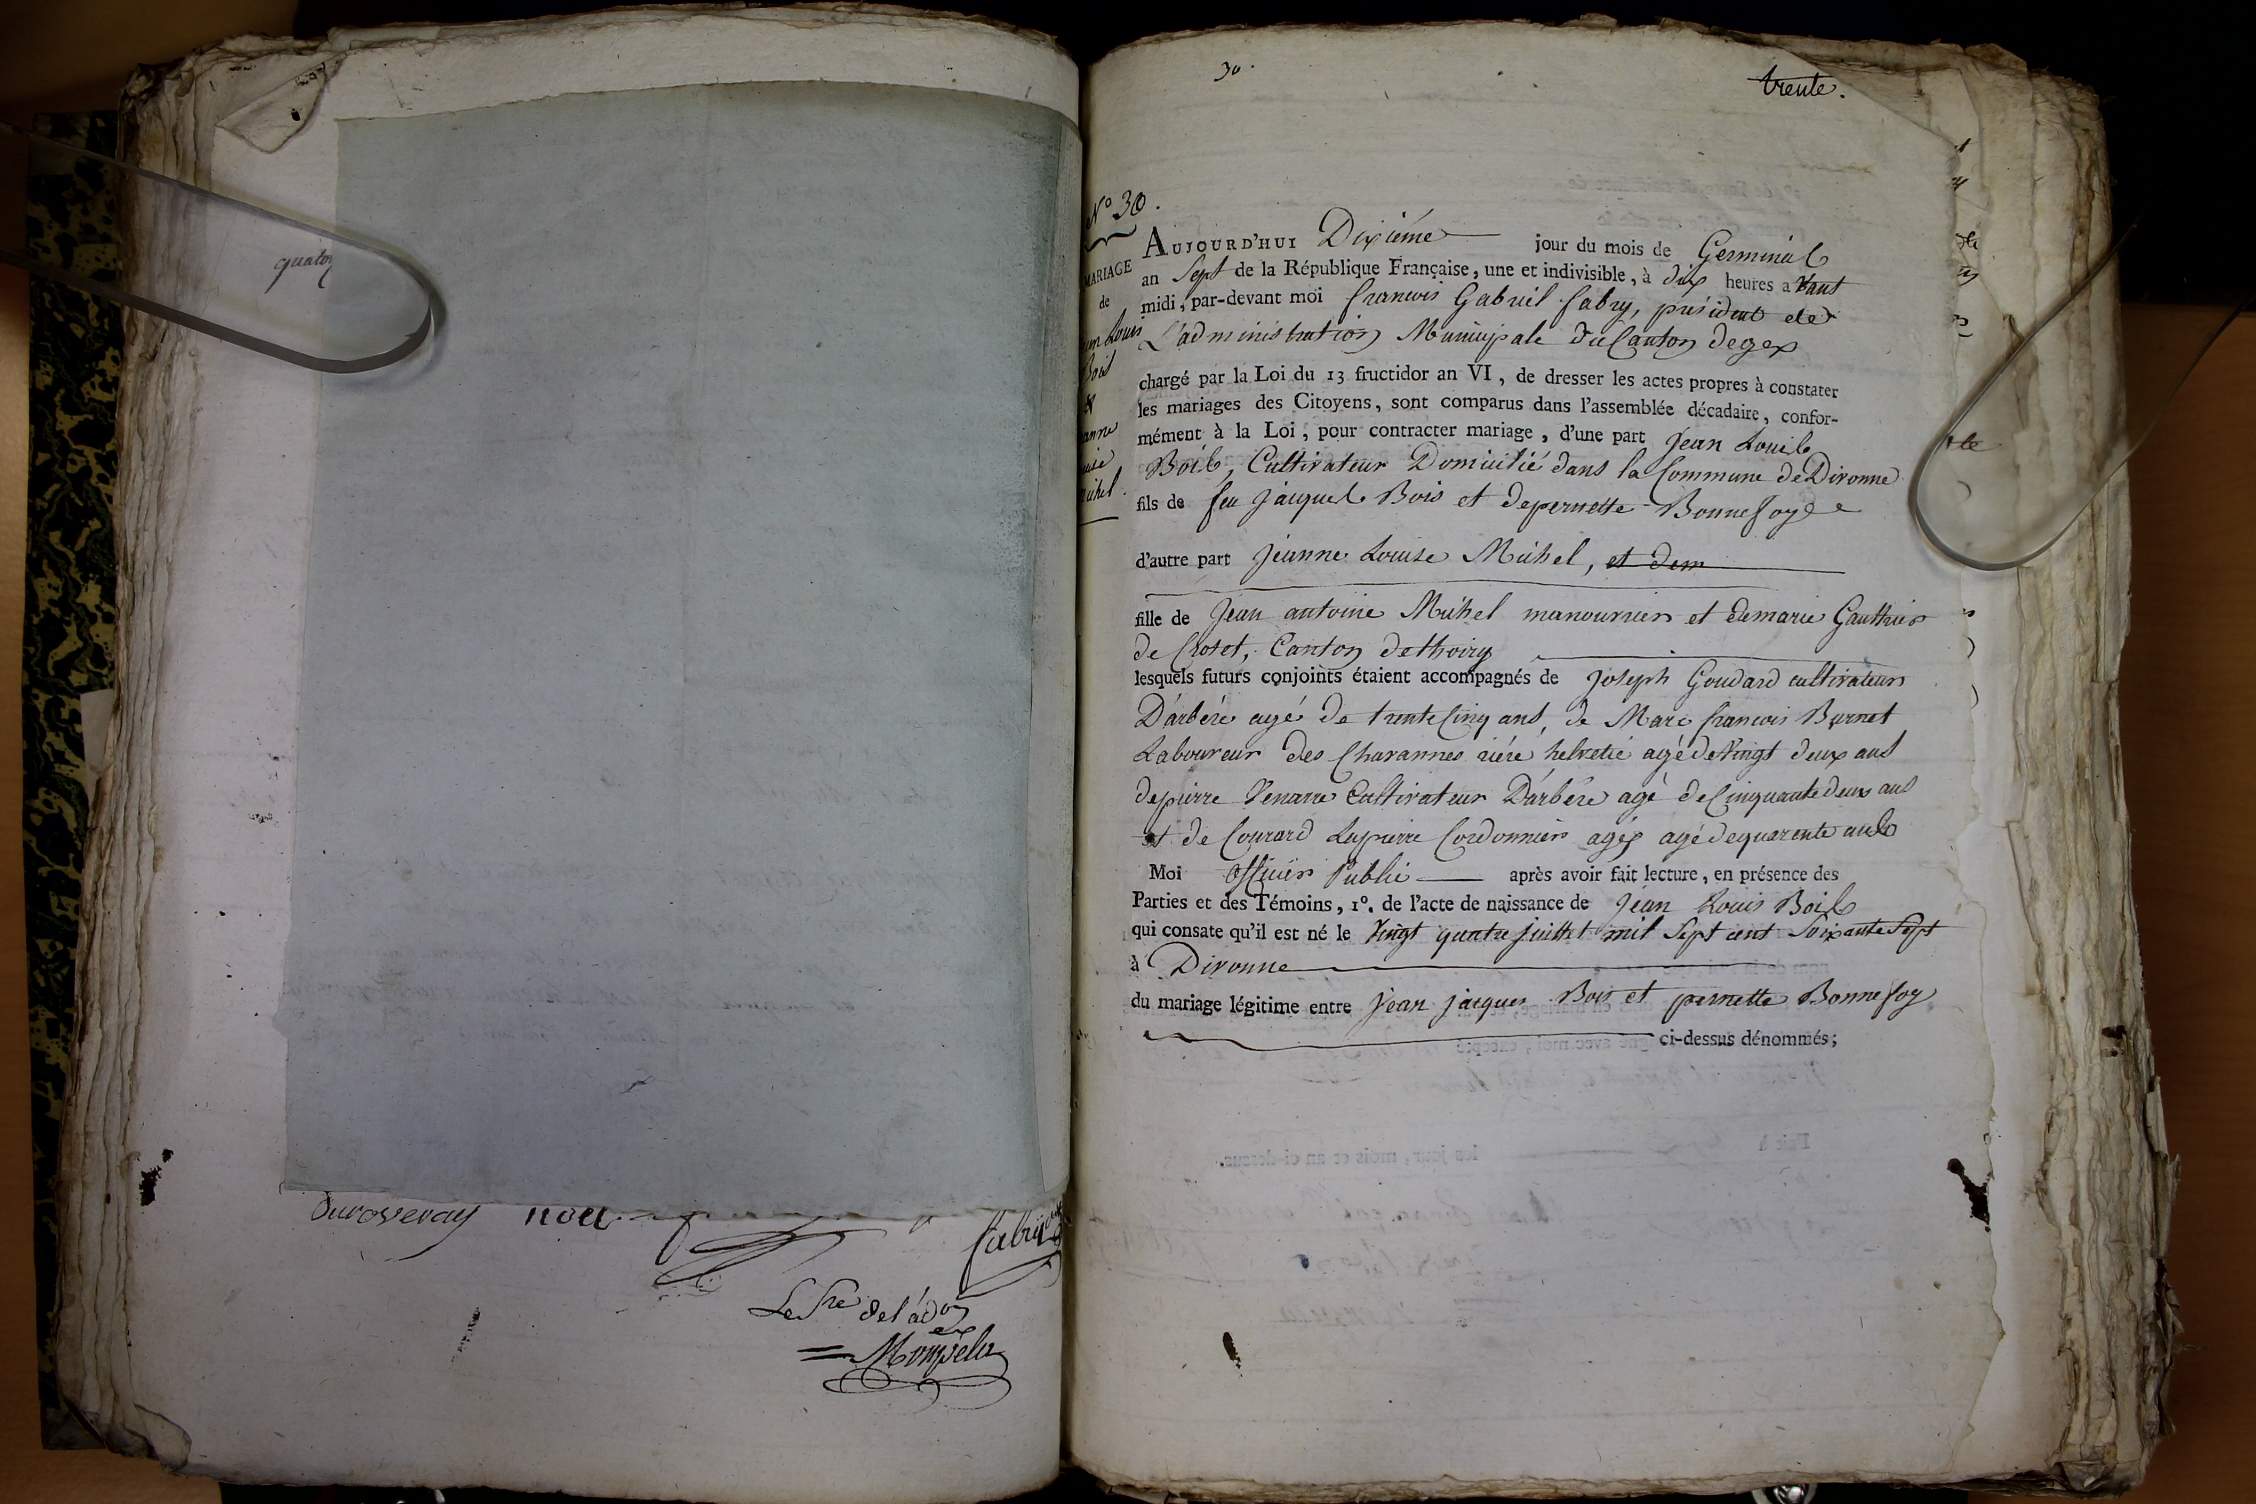 quator
duroveray noel
fabry
Le Sre de l'adon
Mompela
30.
trente.
N° 30.
MARIAGE
de
Louis
Bois
&
anne
uise
Michel.
AUJOURD'HUI Dixiéme jour du mois de Germinal
an Sept de la République Française, une et indivisible, à dix heures avant
midi, par-devant moi francois Gabriel fabry, président de
L'administration Municipale du Canton degex
chargé par la Loi du 13 fructidor an VI, de dresser les actes propres à constater
les mariages des Citoyens, sont comparus dans l'assemblée décadaire, confor-
mément à la Loi, pour contracter mariage, d'une part Jean Louis
Bois, Cultivateur Domicilié dans la Commune de Divonne
fils de feu Jacques Bois et de pernette Bonnefoy
d'autre part Jeanne Louise Michel, et dem
fille de Jean antoine Michel manouvrier et de marie Gauthier
de Crozet, Canton dethoiry
lesquels futurs conjoints étaient accompagnés de Joseph Goudard cultivateur
D'arbére agé de trente Cinq ans, de Marc francois Burnet
Laboureur des Chavannes riére helvetie agé de Vingt deux ans
de pierre Venarre Cultivateur D'arbére agé de Cinquante deux ans
et de Courard Lapierre Cordonnier agé agé dequarente ans
Moi Officier Public après avoir fait lecture, en présence des
Parties et des Témoins, 1°. de l'acte de naissance de Jean Louis Bois
qui consate qu'il est né le Vingt quatre juillet mil Sept cent Soixante Sept
à Divonne
du mariage légitime entre Jean jacques Bois et pernette Bonnefoy
ci-dessus dénommés;